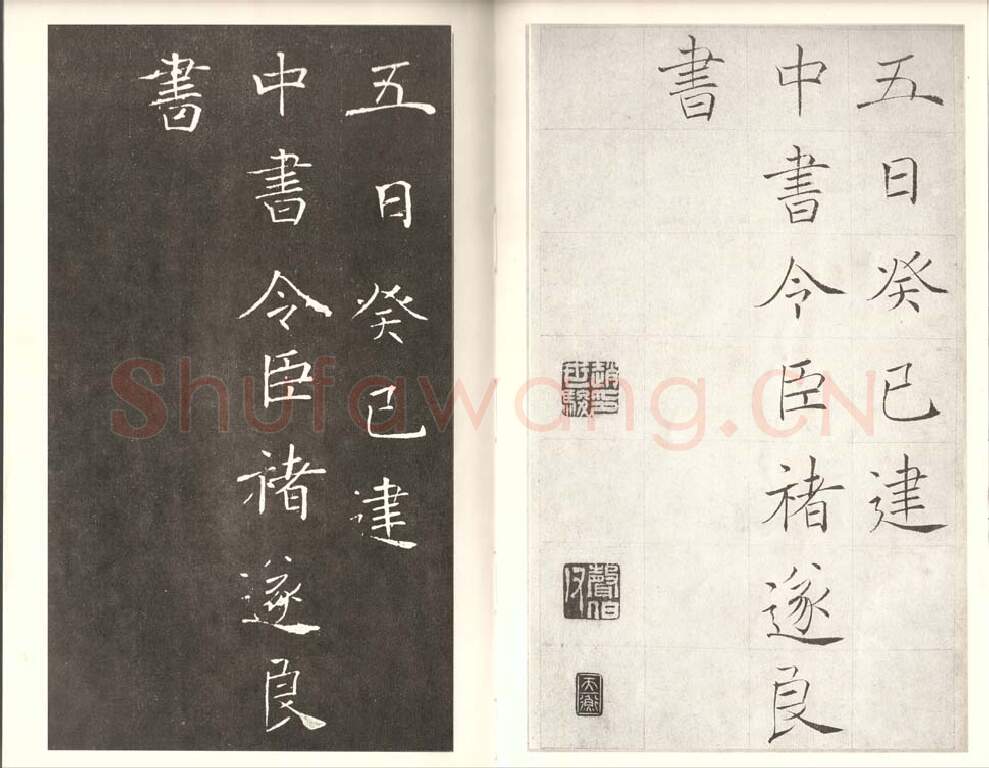 五日癸巳建
中書令臣褚遂良
書
趙印世駿
聲伯
五日癸巳建
中書令臣褚遂良
書
Shufawang.CN